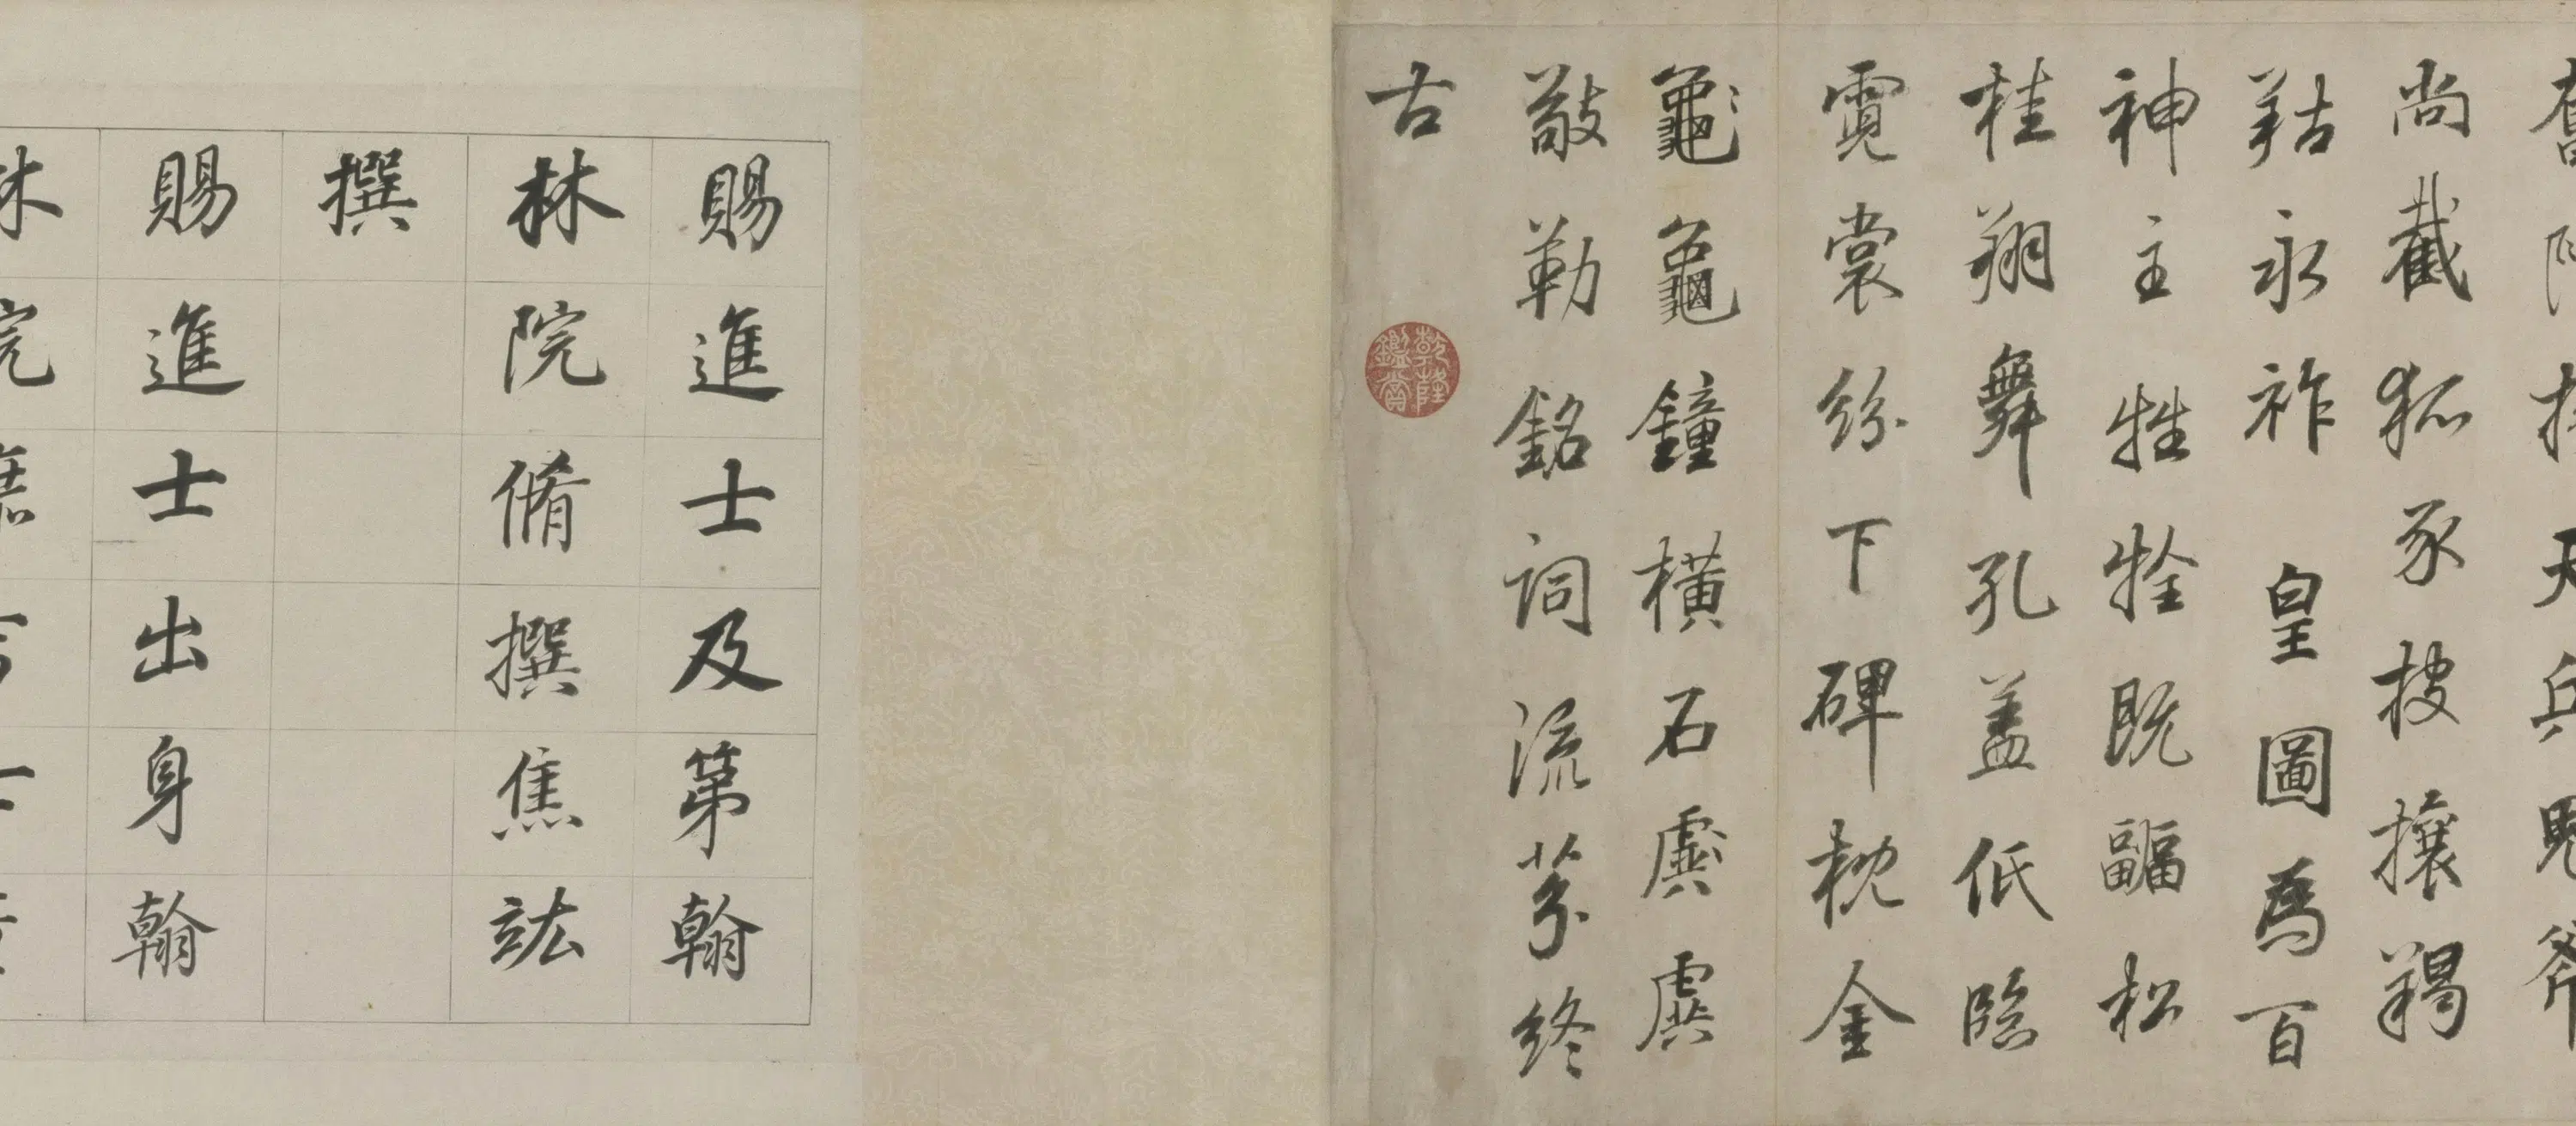 天兵
尚截狐豕搜攘羯
羖永祚皇圖為百
神主牲牷既副松
桂翔舞孔蓋低臨
霓裳紛下碑枕金
龜龜鐘橫石虡虡
敲勒銘詞流芬終
古
乾隆鑑賞
賜進士及第翰
林院脩撰焦竑
撰
賜進士出身翰
林院